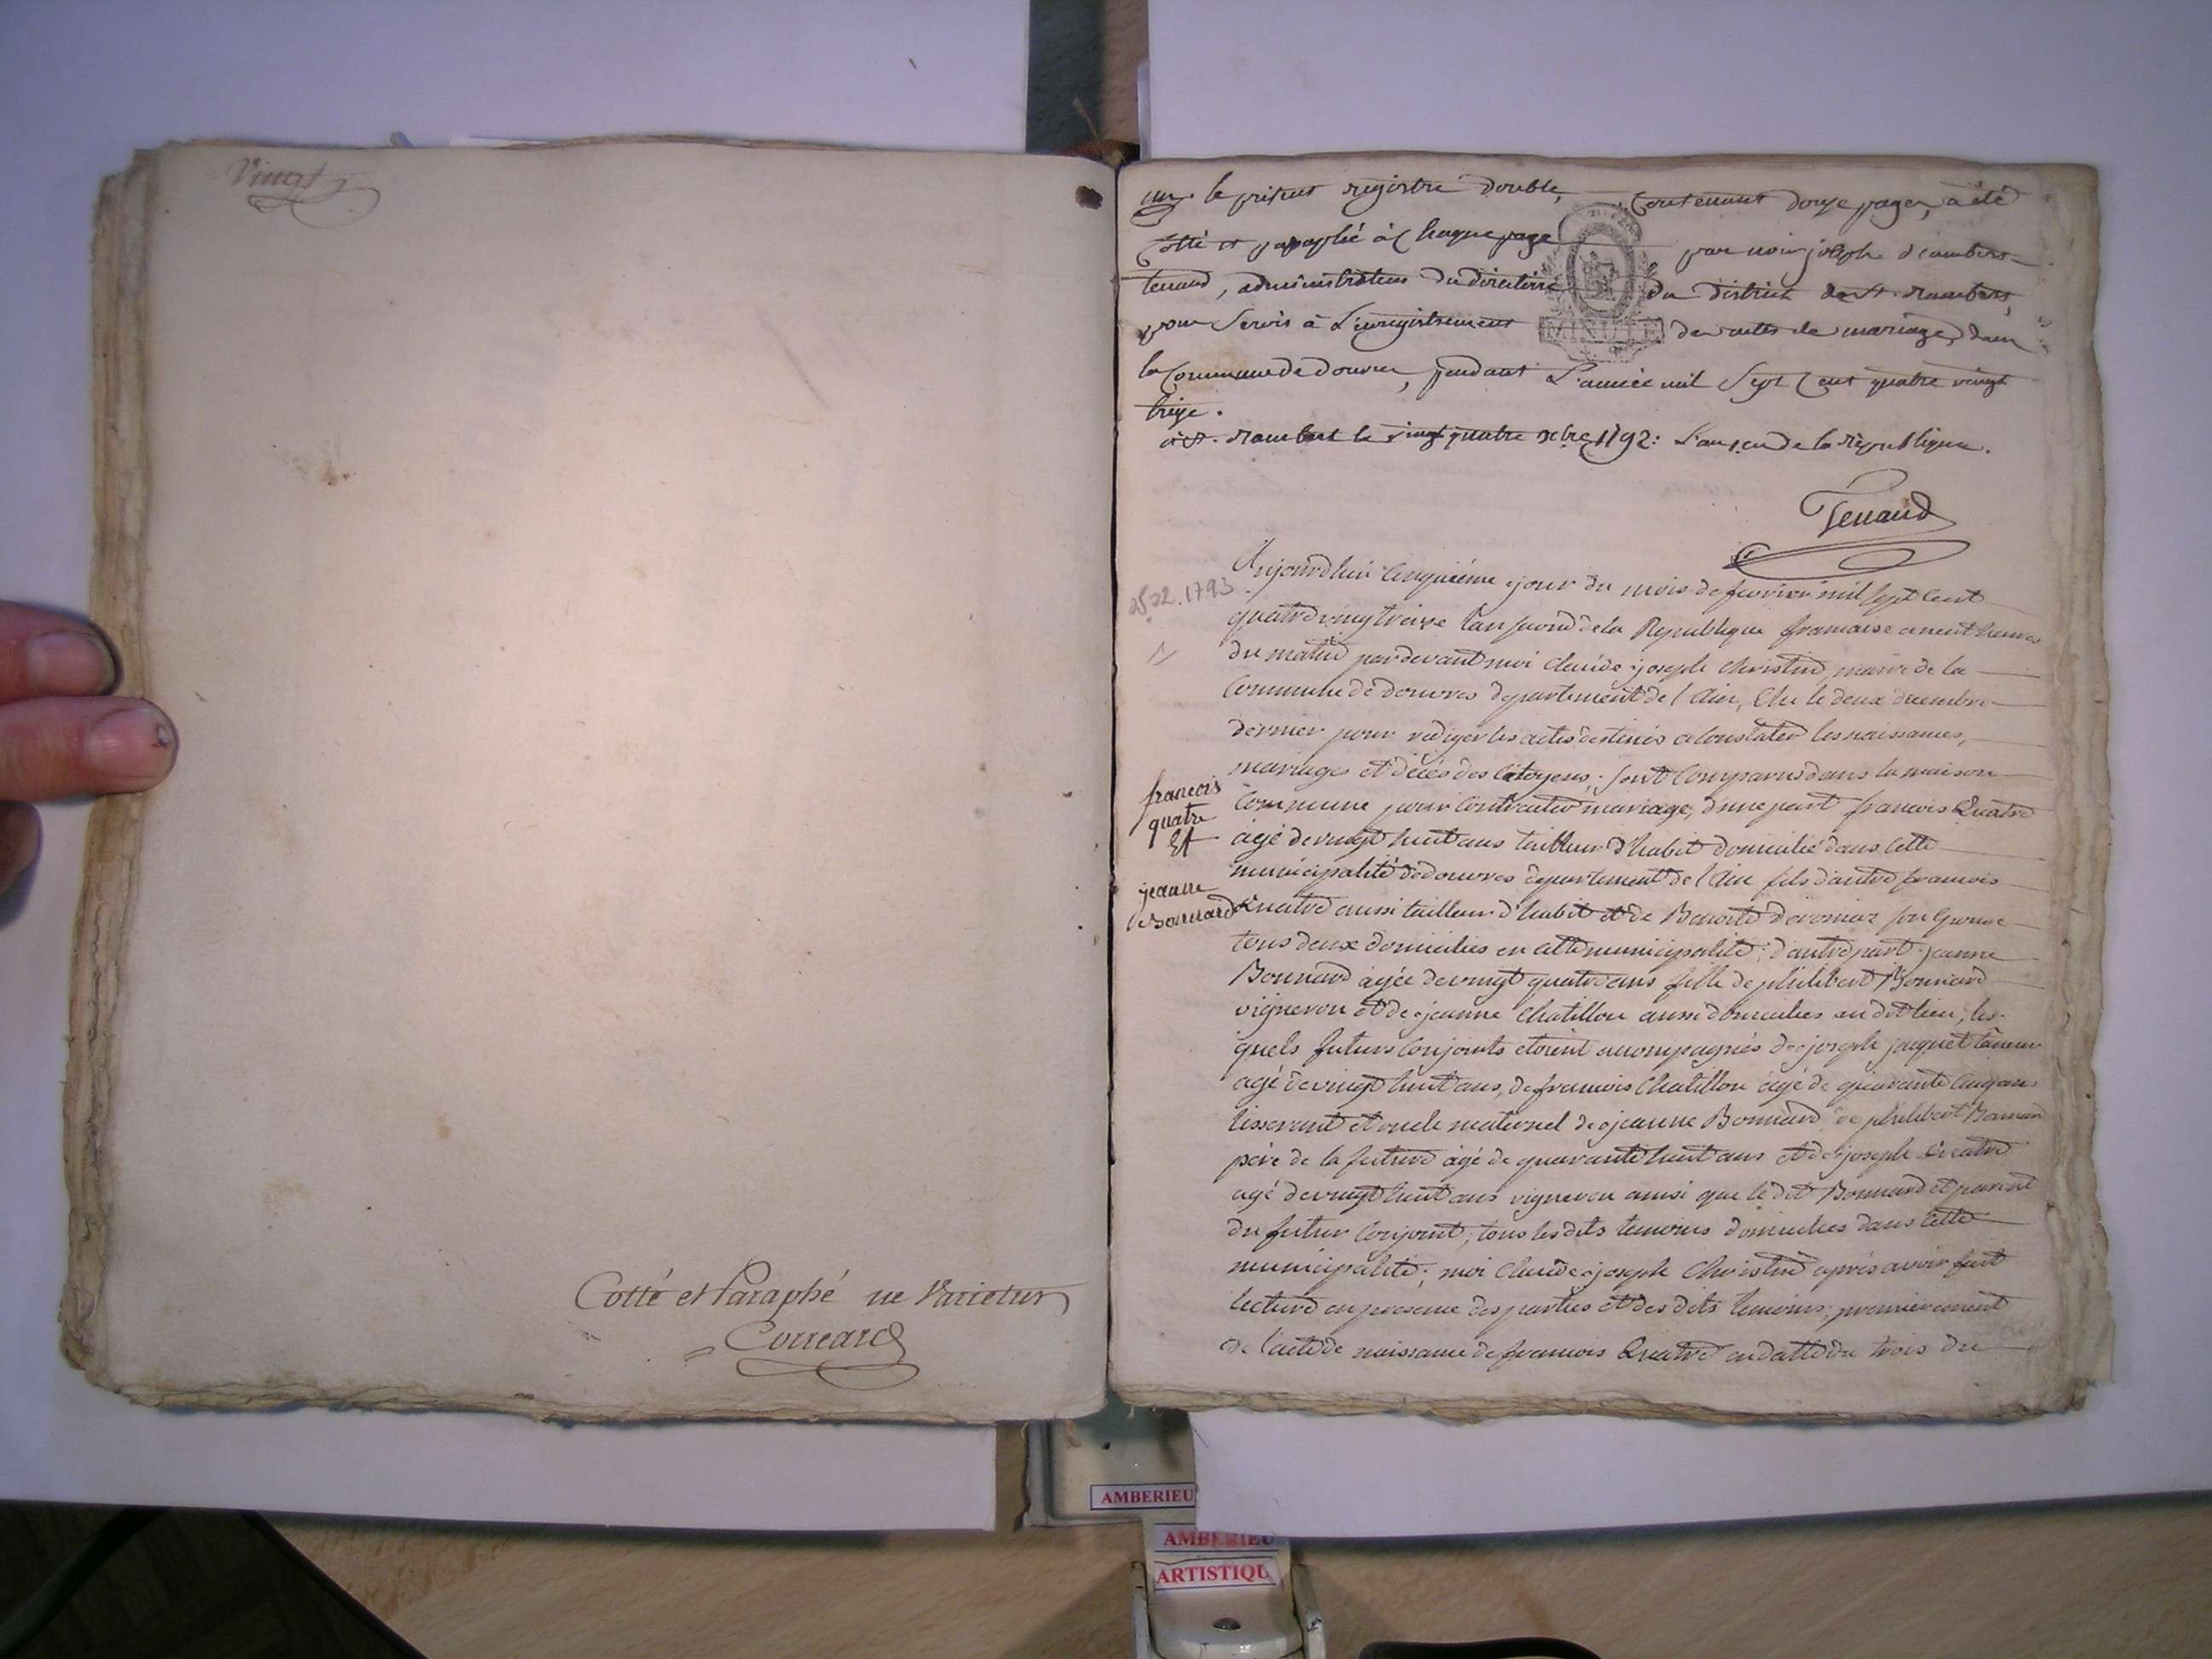 Vingt
Cotté et Paraphé ne Varietur
Correard
un. le présent registre double, Contenant douze pages, a été
Cotté et paraphé à Chaque page par nous joseph
tenand, administrateur du directoire du district de St. rambert,
pour Servir à L'enregistrement des actes de mariage, dans
MINUTE
la Commune de douvres, pendant L'année mil Sept Cent quatre vingt
treize.
à St. rambert le vingt quatre xbre 1792: L'an 1er de la république.
Tenand
25.02.1793
Aujourdhui cinquiéme jour du mois de fevrier mil sept cent
quatre vingt treize l'an second de la Republique francaise a neuf heures
du matin pardevant moi claude joseph christin, maire de la
Commune de douvres departement de l'Ain, Elu le deux decembre
dernier pour rediger les actes destinés a constater les naissances,
mariages et décés des citoyens; sont comparus dans la maison
francois
quatre
Et
jeanne
Bonnard
Commune pour contracter mariage, d'une part francois Quatre
agé de vingt huit ans tailleur d'habit domicilié dans cette
municipalité de douvres departement de l'Ain fils d'autre francois
Quatre aussi tailleur d'habit et de Benoite son Epouse
tous deux domiciliés en cette municipalité; d'autre part jeanne
Bonnard agée de vingt quatre ans fille de philibert Bonnard
vigneron et de jeanne Chatillon aussi domiciliés au dit lieu; les-
quels futurs conjoints etoient accompagnés de joseph jaquet
agé de vingt huit ans, de francois Chatillon agé de quarante cinq ans
tisserand et oncle maternel de jeanne Bonnard, de philibert Bonnard
pere de la future agé de quarante huit ans et de joseph Quatre
agé de vingt huit ans vigneron ainsi que le dit Bonnard et parent
du futur conjoint; tous les dits temoins domiciliés dans cette
municipalité; moi claude joseph Christin après avoir fait
lecture en presence des parties et des dits temoins; premierement
de l'acte de naissance de francois Quatre en datte du trois du
AMBERIEU
AMBERIEU
ARTISTIQU